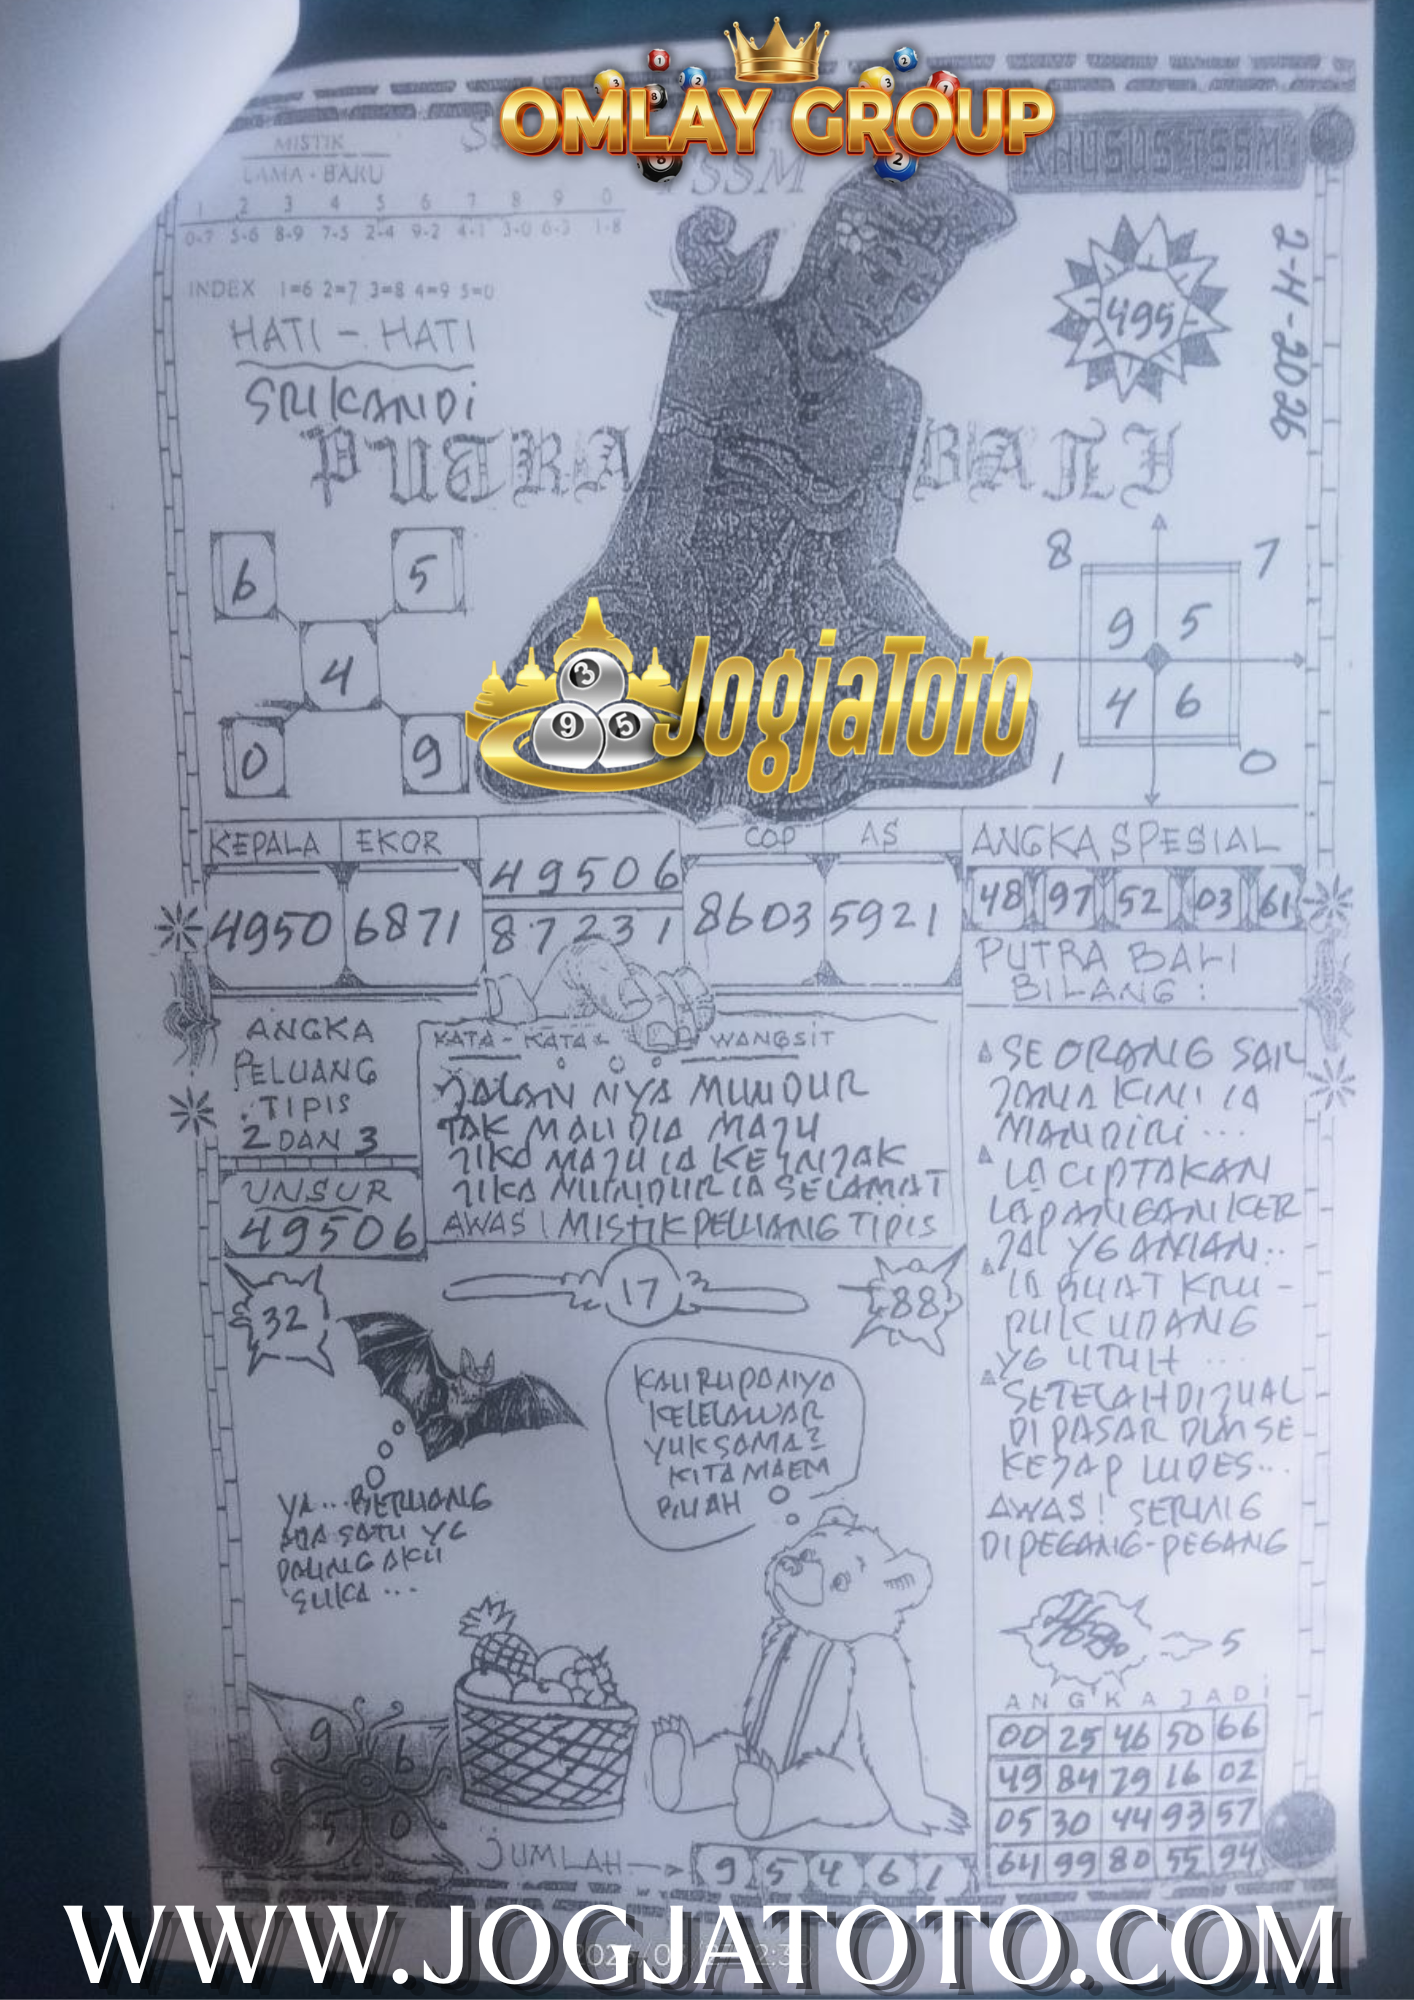 OMLAY GROUP
MISTIK
LAMA - BARU
SSM
1 2 3 4 5 6 7 8 9 0
0-7 5-6 8-9 7-5 2-4 9-2 4-1 3-0 6-3 1-8
INDEX 1=6 2=7 3=8 4=9 5=0
HATI - HATI
SRIKANDI
PUTRA BALI
495
2-4-2026
6 5
4
0 9
JogjaToto
3
9 5
8 7
9 5
4 6
1 0
KEPALA EKOR
4950 6871
49506
87231
COP AS
8603 5921
ANGKA SPESIAL
48 97 52 03 61
PUTRA BALI
BILANG :
ANGKA
PELUANG
TIPIS
2 DAN 3
UNSUR
49506
KATA - KATA WANGSIT
JALAN NYA MUNDUR
TAK MAU DIA MAJU
JIKA MAJU IA KEINJAK
JIKA MUNDUR IA SELAMAT
AWAS ! MISTIK PELUANG TIPIS
SEORANG SAR
JANA KINI IA
MANDIRI ...
IA CIPTAKAN
LAPANGAN KER
JA YG AMAN..
IA BUAT KRU -
PUK UDANG
YG UTUH ...
SETELAH DI JUAL
DI PASAR DLM SE
KEJAP LUDES...
AWAS ! SERING
DIPEGANG-PEGANG
32
17
88
KAU RUPANYA
KELELAWAR
YUK SAMA2
KITA MAEM
BUAH
YA ... BERUANG
ADA SATU YG
PALING AKU
SUKA ...
9 6
5 0
JUMLAH → 9 5 4 6 1
5
ANGKA JADI
00 25 46 50 66
49 84 79 16 02
05 30 44 93 57
64 99 80 55 94
WWW.JOGJATOTO.COM